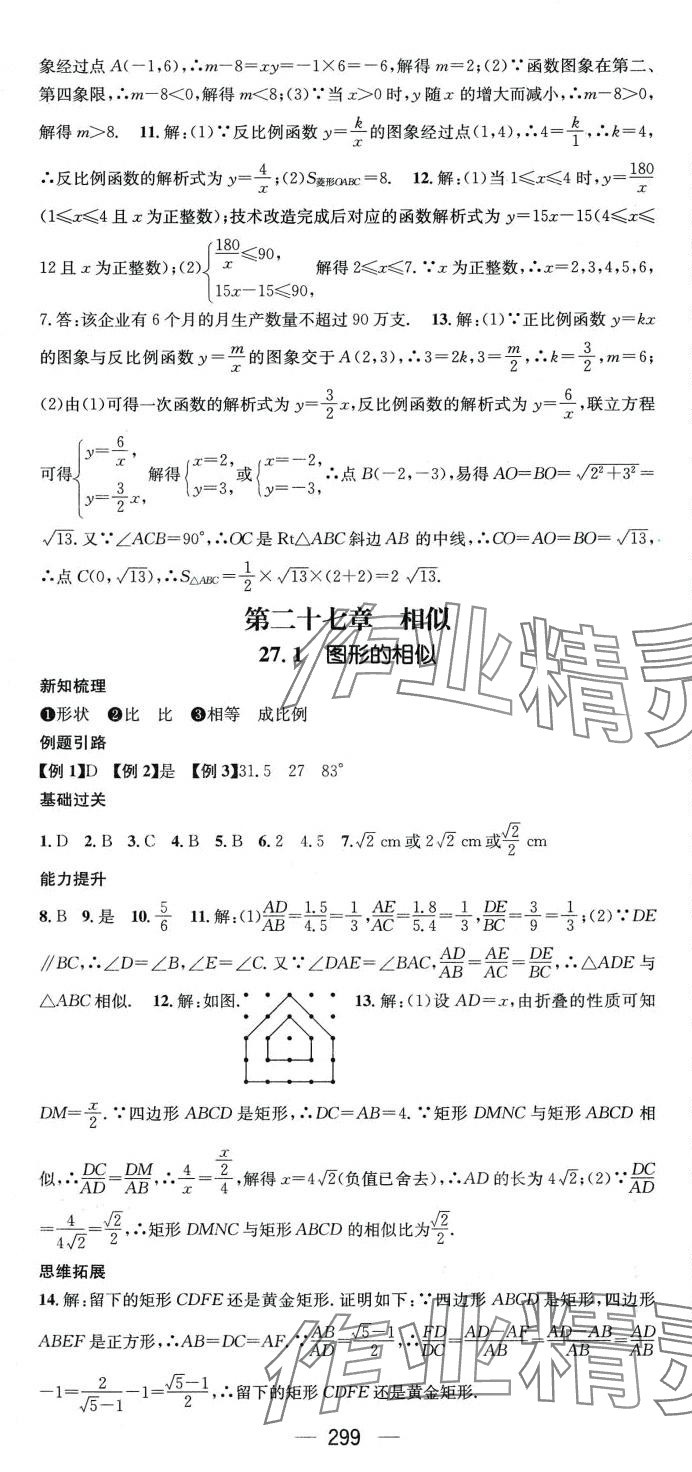 象经过点 A(-1,6),∴m-8=xy=-1×6=-6,解得 m=2;(2)∵函数图象在第二、
第四象限,∴m-8<0,解得 m<8;(3)∵当 x>0 时,y 随 x 的增大而减小,∴m-8>0,
解得 m>8. 11.解:(1)∵反比例函数 y=k/x 的图象经过点(1,4),∴4=k/1,∴k=4,
∴反比例函数的解析式为 y=4/x;(2)S菱形OABC=8. 12.解:(1)当 1≤x≤4 时,y=180/x
(1≤x≤4 且 x 为正整数);技术改造完成后对应的函数解析式为 y=15x-15(4≤x≤
12 且 x 为正整数);(2){180/x≤90, 15x-15≤90, 解得 2≤x≤7.∵x 为正整数,∴x=2,3,4,5,6,
7.答:该企业有 6 个月的月生产数量不超过 90 万支. 13.解:(1)∵正比例函数 y=kx
的图象与反比例函数 y=m/x 的图象交于 A(2,3),∴3=2k,3=m/2,∴k=3/2,m=6;
(2)由(1)可得一次函数的解析式为 y=3/2 x,反比例函数的解析式为 y=6/x,联立方程
可得{y=6/x, y=3/2 x, 解得{x=2, y=3, 或{x=-2, y=-3, ∴点 B(-2,-3),易得 AO=BO=√(2²+3²)=
√13.又∵∠ACB=90°,∴OC 是 Rt△ABC 斜边 AB 的中线,∴CO=AO=BO=√13,
∴点 C(0,√13),∴S△ABC=1/2×√13×(2+2)=2√13.
第二十七章 相似
27.1 图形的相似
新知梳理
❶形状 ❷比 比 ❸相等 成比例
例题引路
【例 1】D 【例 2】是 【例 3】31.5 27 83°
基础过关
1.D 2.B 3.C 4.B 5.B 6.2 4.5 7.√2 cm 或 2√2 cm 或 √2/2 cm
能力提升
8.B 9.是 10.5/6 11.解:(1)AD/AB=1.5/4.5=1/3,AE/AC=1.8/5.4=1/3,DE/BC=3/9=1/3;(2)∵DE
∥BC,∴∠D=∠B,∠E=∠C.又∵∠DAE=∠BAC,AD/AB=AE/AC=DE/BC,∴△ADE 与
△ABC 相似. 12.解:如图. 13.解:(1)设 AD=x,由折叠的性质可知
DM=x/2.∵四边形 ABCD 是矩形,∴DC=AB=4.∵矩形 DMNC 与矩形 ABCD 相
似,∴DC/AD=DM/AB,∴4/x=(x/2)/4,解得 x=4√2(负值已舍去),∴AD 的长为 4√2;(2)∵DC/AD
=4/(4√2)=√2/2,∴矩形 DMNC 与矩形 ABCD 的相似比为 √2/2.
思维拓展
14.解:留下的矩形 CDFE 还是黄金矩形.证明如下:∵四边形 ABCD 是矩形,四边形
ABEF 是正方形,∴AB=DC=AF.∵AB/AD=(√5-1)/2,∴FD/DC=(AD-AF)/AB=(AD-AB)/AB=AD/AB
-1=2/(√5-1)-1=(√5-1)/2,∴留下的矩形 CDFE 还是黄金矩形.
299
作业精灵
作业精灵